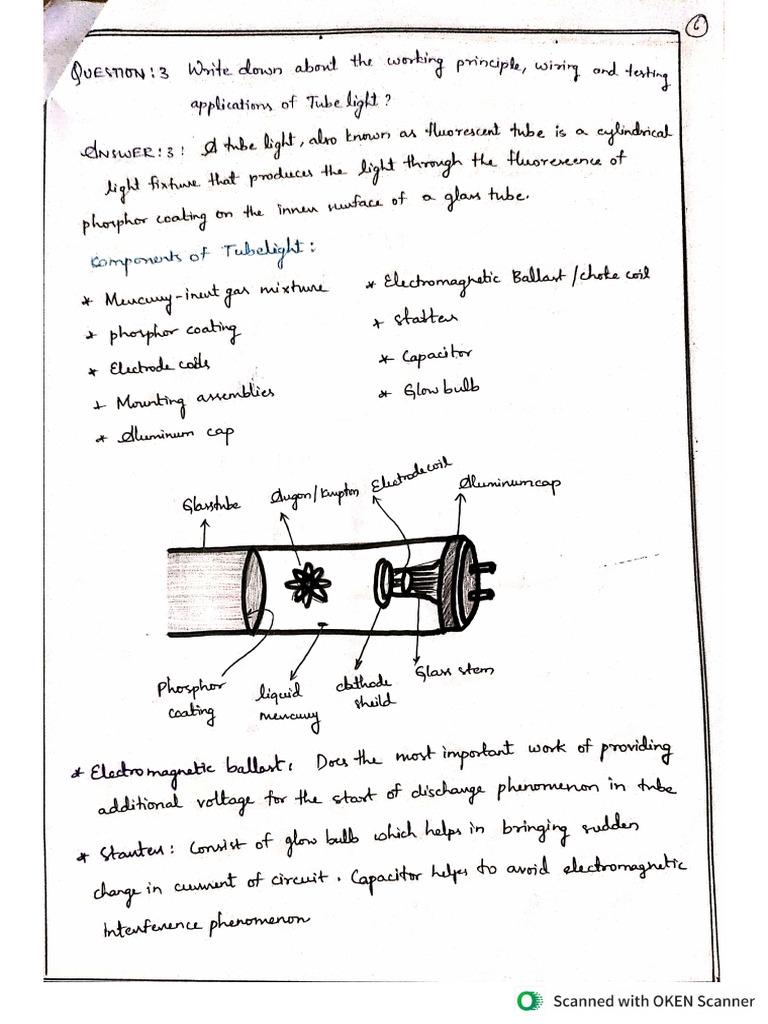 6
QUESTION: 3 Write down about the working principle, wiring and testing
applications of Tube light?
ANSWER: 3: A tube light, also known as fluorescent tube is a cylindrical
light fixture that produces the light through the fluorescence of
phosphor coating on the inner surface of a glass tube.
Components of Tubelight:
* Mercury-inert gas mixture
* Electromagnetic Ballast/choke coil
* phosphor coating
* Statter
* Electrode coils
* Capacitor
* Mounting assemblies
* Glow bulb
* Aluminum cap
Glasstube
Argon/krypton
Electrode coil
Aluminumcap
Phosphor
coating
liquid
mercury
cathode
sheild
Glass stem
* Electromagnetic ballast: Does the most important work of providing
additional voltage for the start of discharge phenomenon in tube
* Starter: Consist of glow bulb which helps in bringing sudden
change in current of circuit. Capacitor helps to avoid electromagnetic
interference phenomenon
Scanned with OKEN Scanner